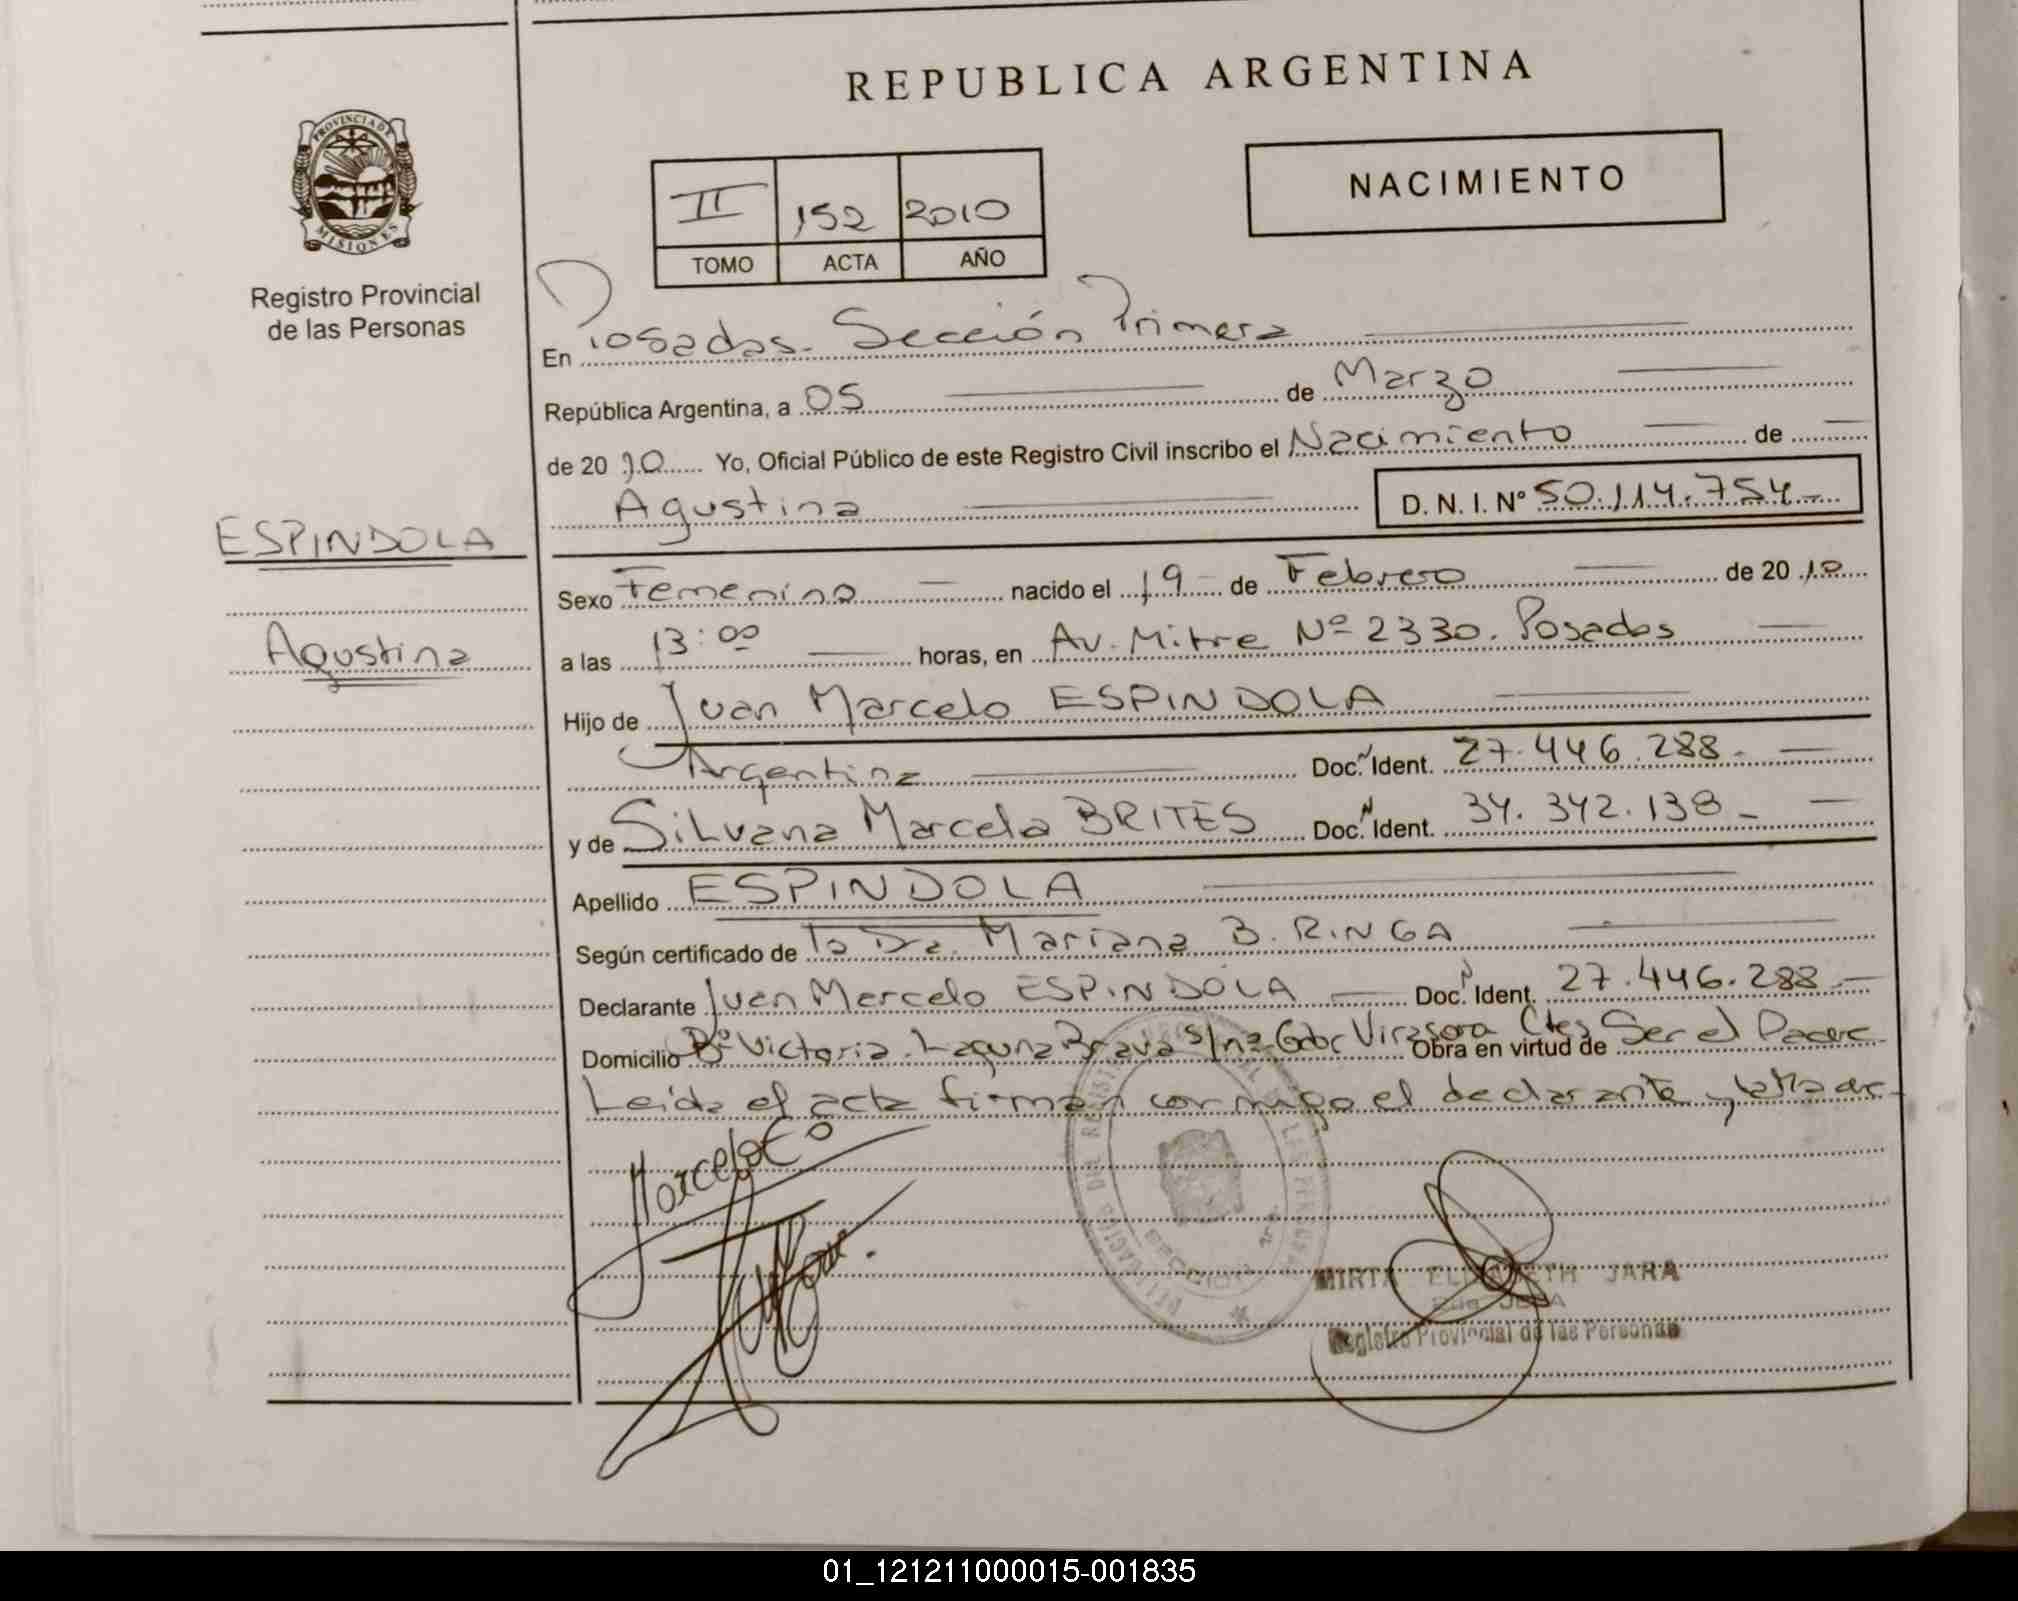 REPUBLICA ARGENTINA
PROVINCIA DE
MISIONES
Registro Provincial
de las Personas
NACIMIENTO
II 152 2010
TOMO ACTA AÑO
En Posadas. Sección Primera
República Argentina, a 05 de Marzo
de 2010 Yo, Oficial Público de este Registro Civil inscribo el Nacimiento de
Agustina D. N. I. Nº 50.114.754
ESPINDOLA
Agustina
Sexo Femenino nacido el 19 de Febrero de 2010
a las 13:00 horas, en Av. Mitre Nº 2330. Posadas
Hijo de Juan Marcelo ESPINDOLA
Argentina Doc. N Ident. 27.446.288
y de Silvana Marcela BRITES Doc. N Ident. 34.342.138
Apellido ESPINDOLA
Según certificado de la Dra. Mariana B. RINGA
Declarante Juan Marcelo ESPINDOLA Doc. N Ident. 27.446.288
Domicilio Bº Victoria. Laguna Brava s/nº Gdor Virasora Ctes Obra en virtud de Ser el Padre
Leida el acta firman conmigo el declarante y la Madre
Marcelo E
MIRTA ELIZABETH JARA
Registro Provincial de las Personas
01_121211000015-001835